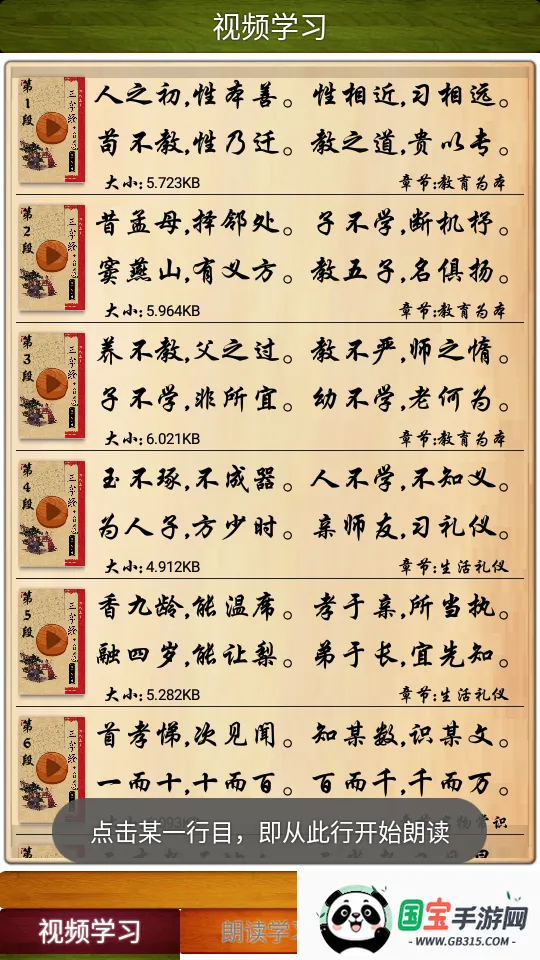 视频学习
第1段
三字经
人之初,性本善。 性相近,习相远。
苟不教,性乃迁。 教之道,贵以专。
大小: 5.723KB 章节:教育为本
第2段
三字经
昔孟母,择邻处。 子不学,断机杼。
窦燕山,有义方。 教五子,名俱扬。
大小: 5.964KB 章节:教育为本
第3段
三字经
养不教,父之过。 教不严,师之惰。
子不学,非所宜。 幼不学,老何为。
大小: 6.021KB 章节:教育为本
第4段
三字经
玉不琢,不成器。 人不学,不知义。
为人子,方少时。 亲师友,习礼仪。
大小: 4.912KB 章节:生活礼仪
第5段
三字经
香九龄,能温席。 孝于亲,所当执。
融四岁,能让梨。 弟于长,宜先知。
大小: 5.282KB 章节:生活礼仪
第6段
三字经
首孝悌,次见闻。 知某数,识某文。
一而十,十而百。 百而千,千而万。
点击某一行目，即从此行开始朗读
视频学习
朗读学习
国宝手游网
-WWW.GB315.COM-